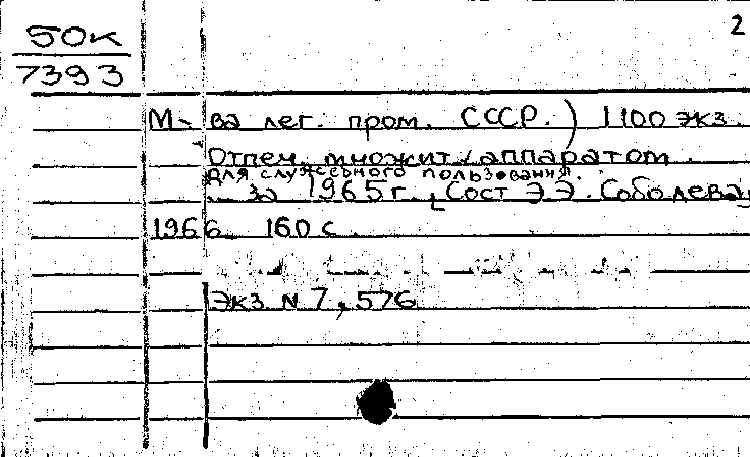 2
50к
7393
М-ва лег. пром. СССР.) 1100 экз.
Отпеч. множит. аппаратом.
Для служебного пользования.
за 1965 г. [Сост Э.Э. Соболева]
1966 160 с.
Экз N 7, 576